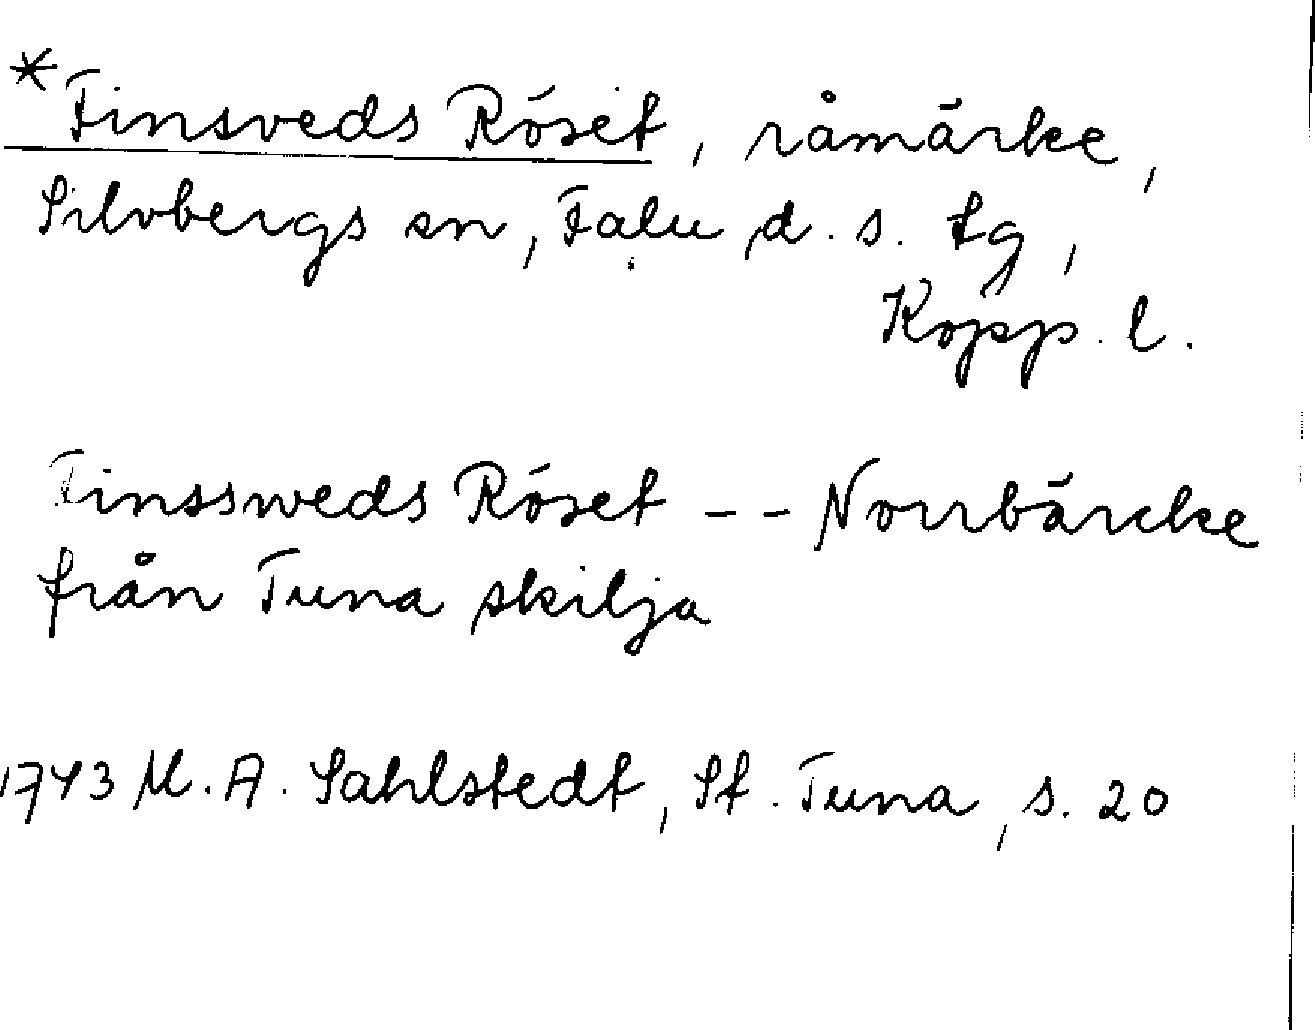 *Finsveds Röset, råmärke,
Silvbergs sn, Falu d. s. tg,
Kopp. l.
Finssweds Röset -- Norrbärcke
från Tuna skilja
1743 M. A. Sahlstedt, St. Tuna, s. 20